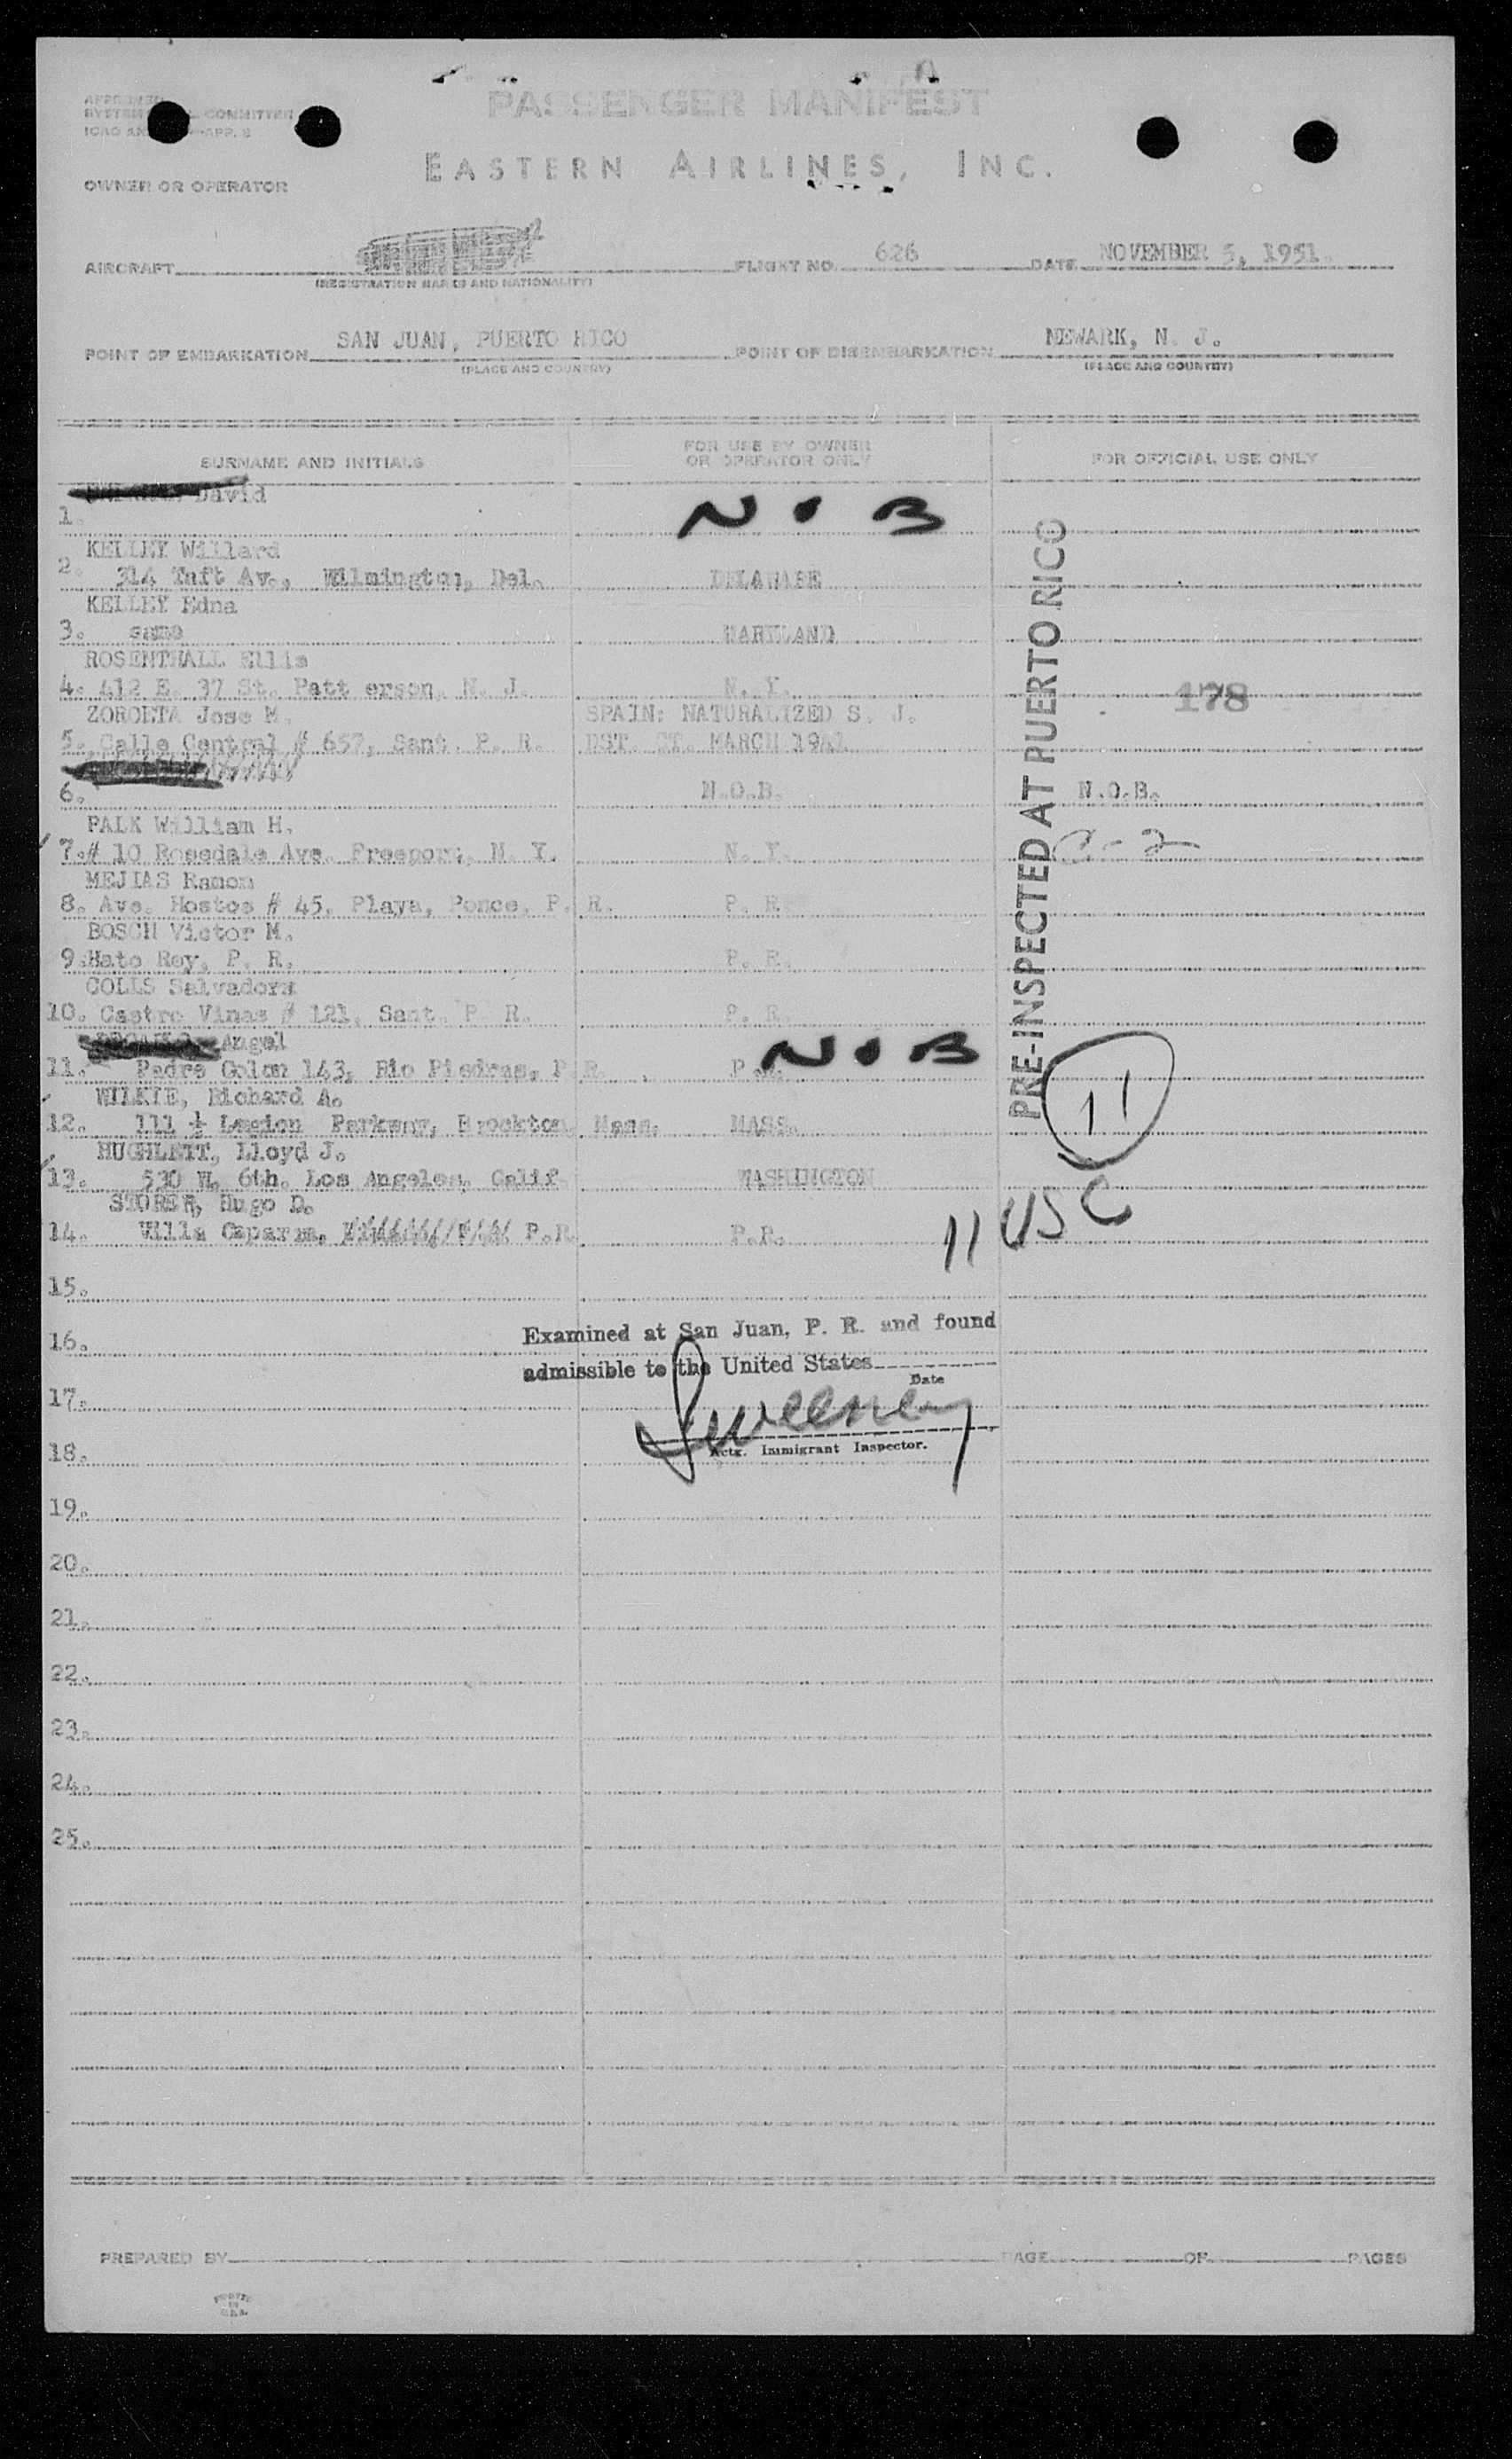 APPROVED
SYSTEM COMMITTEE
ICAO AN APP. 2
PASSENGER MANIFEST
EASTERN AIRLINES, INC.
OWNER OR OPERATOR
AIRCRAFT
(REGISTRATION MARKS AND NATIONALITY)
FLIGHT NO. 626
DATE NOVEMBER 5, 1951.
POINT OF EMBARKATION SAN JUAN, PUERTO RICO
(PLACE AND COUNTRY)
POINT OF DISEMBARKATION NEWARK, N. J.
(PLACE AND COUNTRY)
SURNAME AND INITIALS
FOR USE BY OWNER
OR OPERATOR ONLY
FOR OFFICIAL USE ONLY
David
1. N O B
KELLEY Willard
2. 314 Taft Av., Wilmington, Del. DELAWARE
KELLEY Edna
3. same MARYLAND
ROSENTHALL Ellis
4. 412 E. 37 St. Patt erson, N. J. N. Y. 178
ZOROETA Jose M. SPAIN: NATURALIZED S. J.
5. Calle Central # 657, Sant. P. R. DST. CT. MARCH
6. N.O.B. N.O.B.
PALK William H.
7. # 10 Rosedale Ave. Freeport, N. Y. N. Y. C-2
MEJIAS Ramon
8. Ave. Hostos # 45, Playa, Ponce, P. R. P. R.
BOSCH Victor M.
9. Hato Rey, P. R. P. R.
COLLS Salvadora
10. Castro Vinas # 121, Sant. P. R. P. R.
Angel N O B
11. Padre Colon 143, Rio Piedras, P.R. P.R.
WILKIE, Richard A.
12. 111 ½ Legion Parkway, Brockton, Mass. MASS.
HUGHLETT, Lloyd J.
13. 530 W. 6th. Los Angeles, Calif WASHINGTON
STORER, Hugo D.
14. Villa Caparra, P.R. P.R.
PRE-INSPECTED AT PUERTO RICO
11
11 USC
15.
16.
Examined at San Juan, P. R. and found
admissible to the United States
Date
17.
Sweeney
Actg. Immigrant Inspector.
18.
19.
20.
21.
22.
23.
24.
25.
PREPARED BY
PAGE OF PAGES
PRINTED
IN
U.S.A.